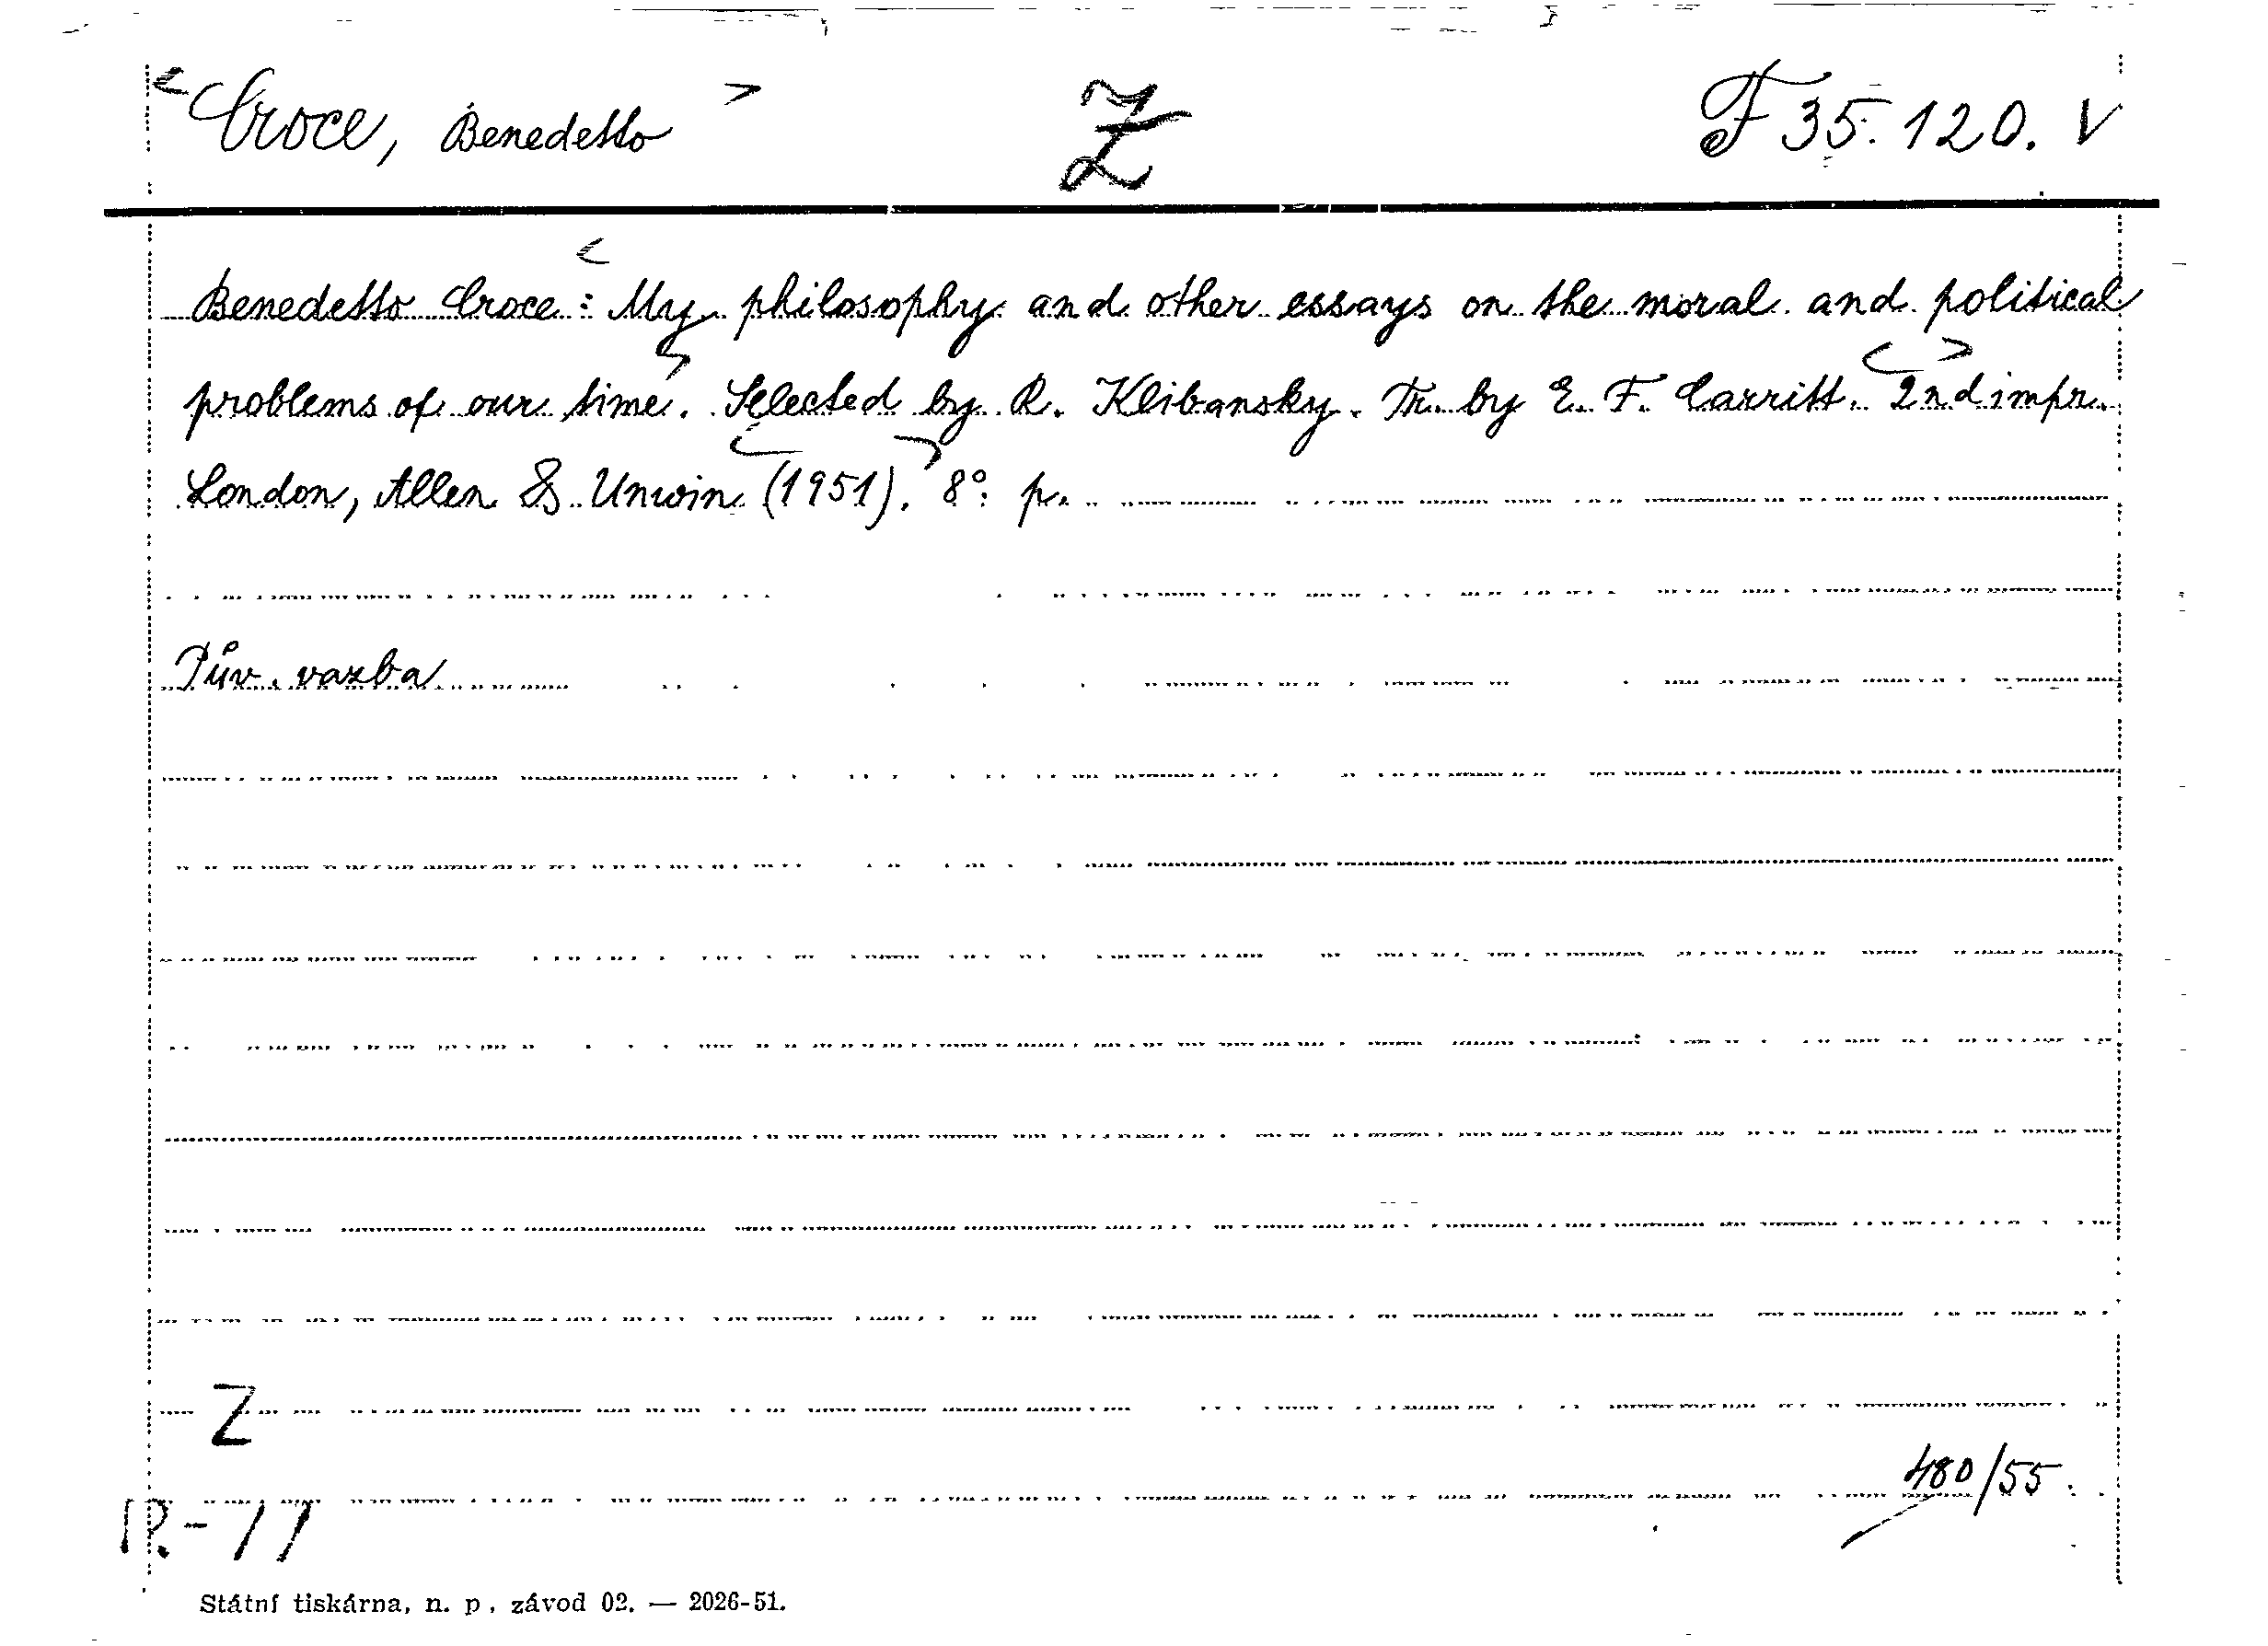 <Croce, Benedetto> Z F 35.120. V
Benedetto Croce: <My philosophy and other essays on the moral and political
problems of our time>. Selected by R. Klibansky. Tr. by E. F. Carritt. <2nd> impr.
London, Allen & Unwin <(1951)>. 8°. p.
Pův. vazba
Z
480/55.
Státní tiskárna, n. p., závod 02. — 2026-51.